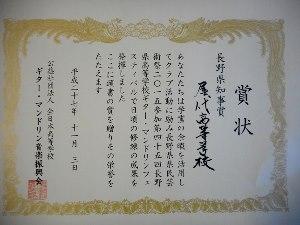 賞状
長野県知事賞
屋代高等学校
あなたたちは学業の余暇を活用し
てクラブ活動に励み長野県県民芸
術祭2015参加第四十五回長野
県高等学校ギター・マンドリンフェ
スティバルで日頃の修練の成果を
発揮しました
ここに清書の賞を贈りその栄誉を
たたえます
平成二十七年 十一月 三日
公益社団法人 全日本高等学校
ギター・マンドリン音楽振興会